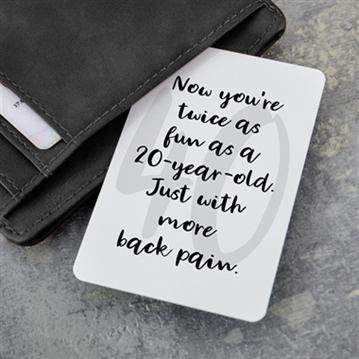 Now you're
twice as
fun as a
20-year-old.
Just with
more
back pain.
40